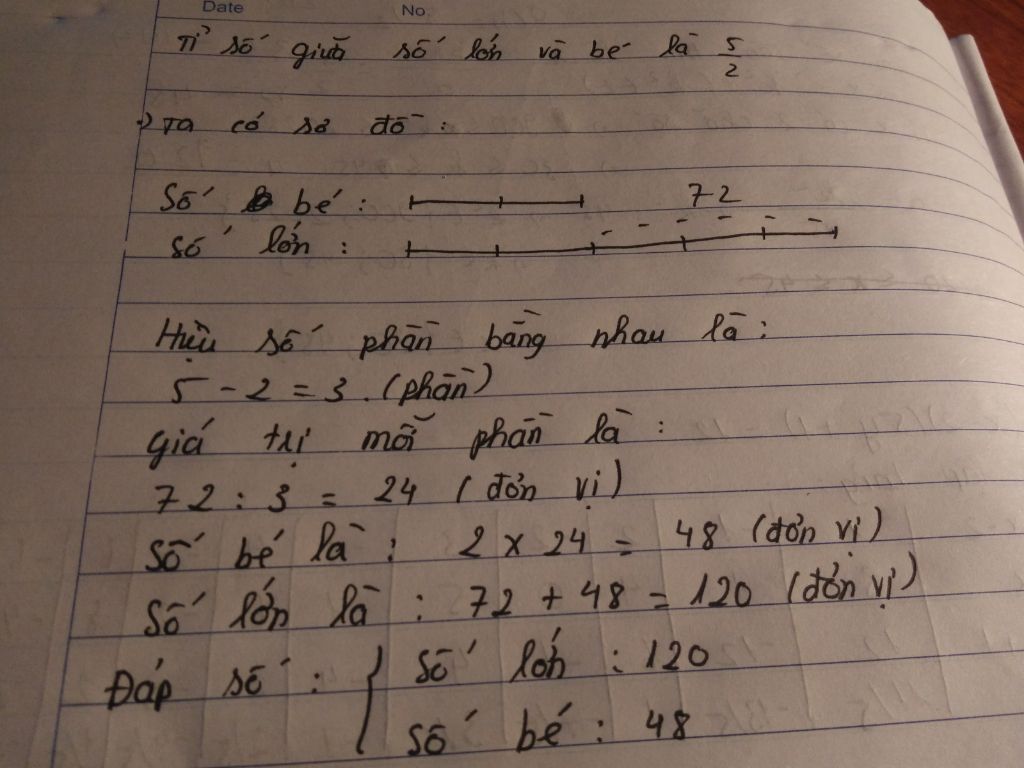 Date No
Tỉ số giữa số lớn và bé là 5/2
Ta có sơ đồ :
Số bé :
72
số lớn :
Hiệu số phần bằng nhau là :
5 - 2 = 3 . (phần)
giá trị mỗi phần là :
72 : 3 = 24 ( đơn vị )
Số bé là : 2 x 24 = 48 (đơn vị)
Số lớn là : 72 + 48 = 120 (đơn vị)
Đáp số : { Số lớn : 120
Số bé : 48